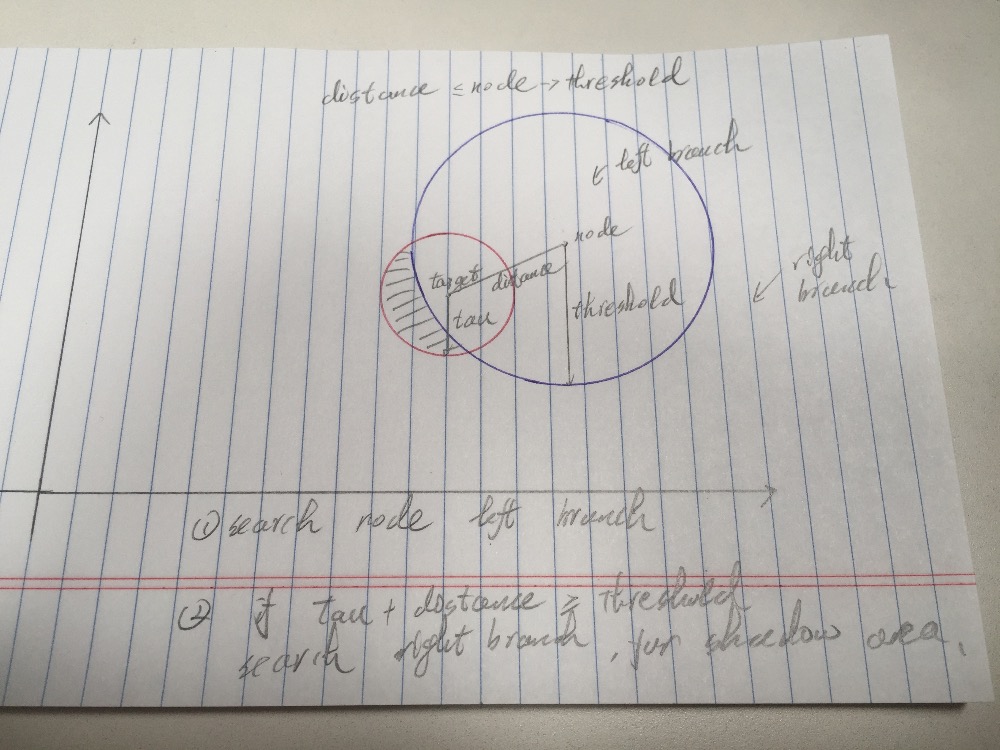 distance ≤ node → threshold
left branch
node
right
branch
target
distance
tau
threshold
① search node left branch
② if tau + distance ≥ threshold
search right branch, for shadow area.